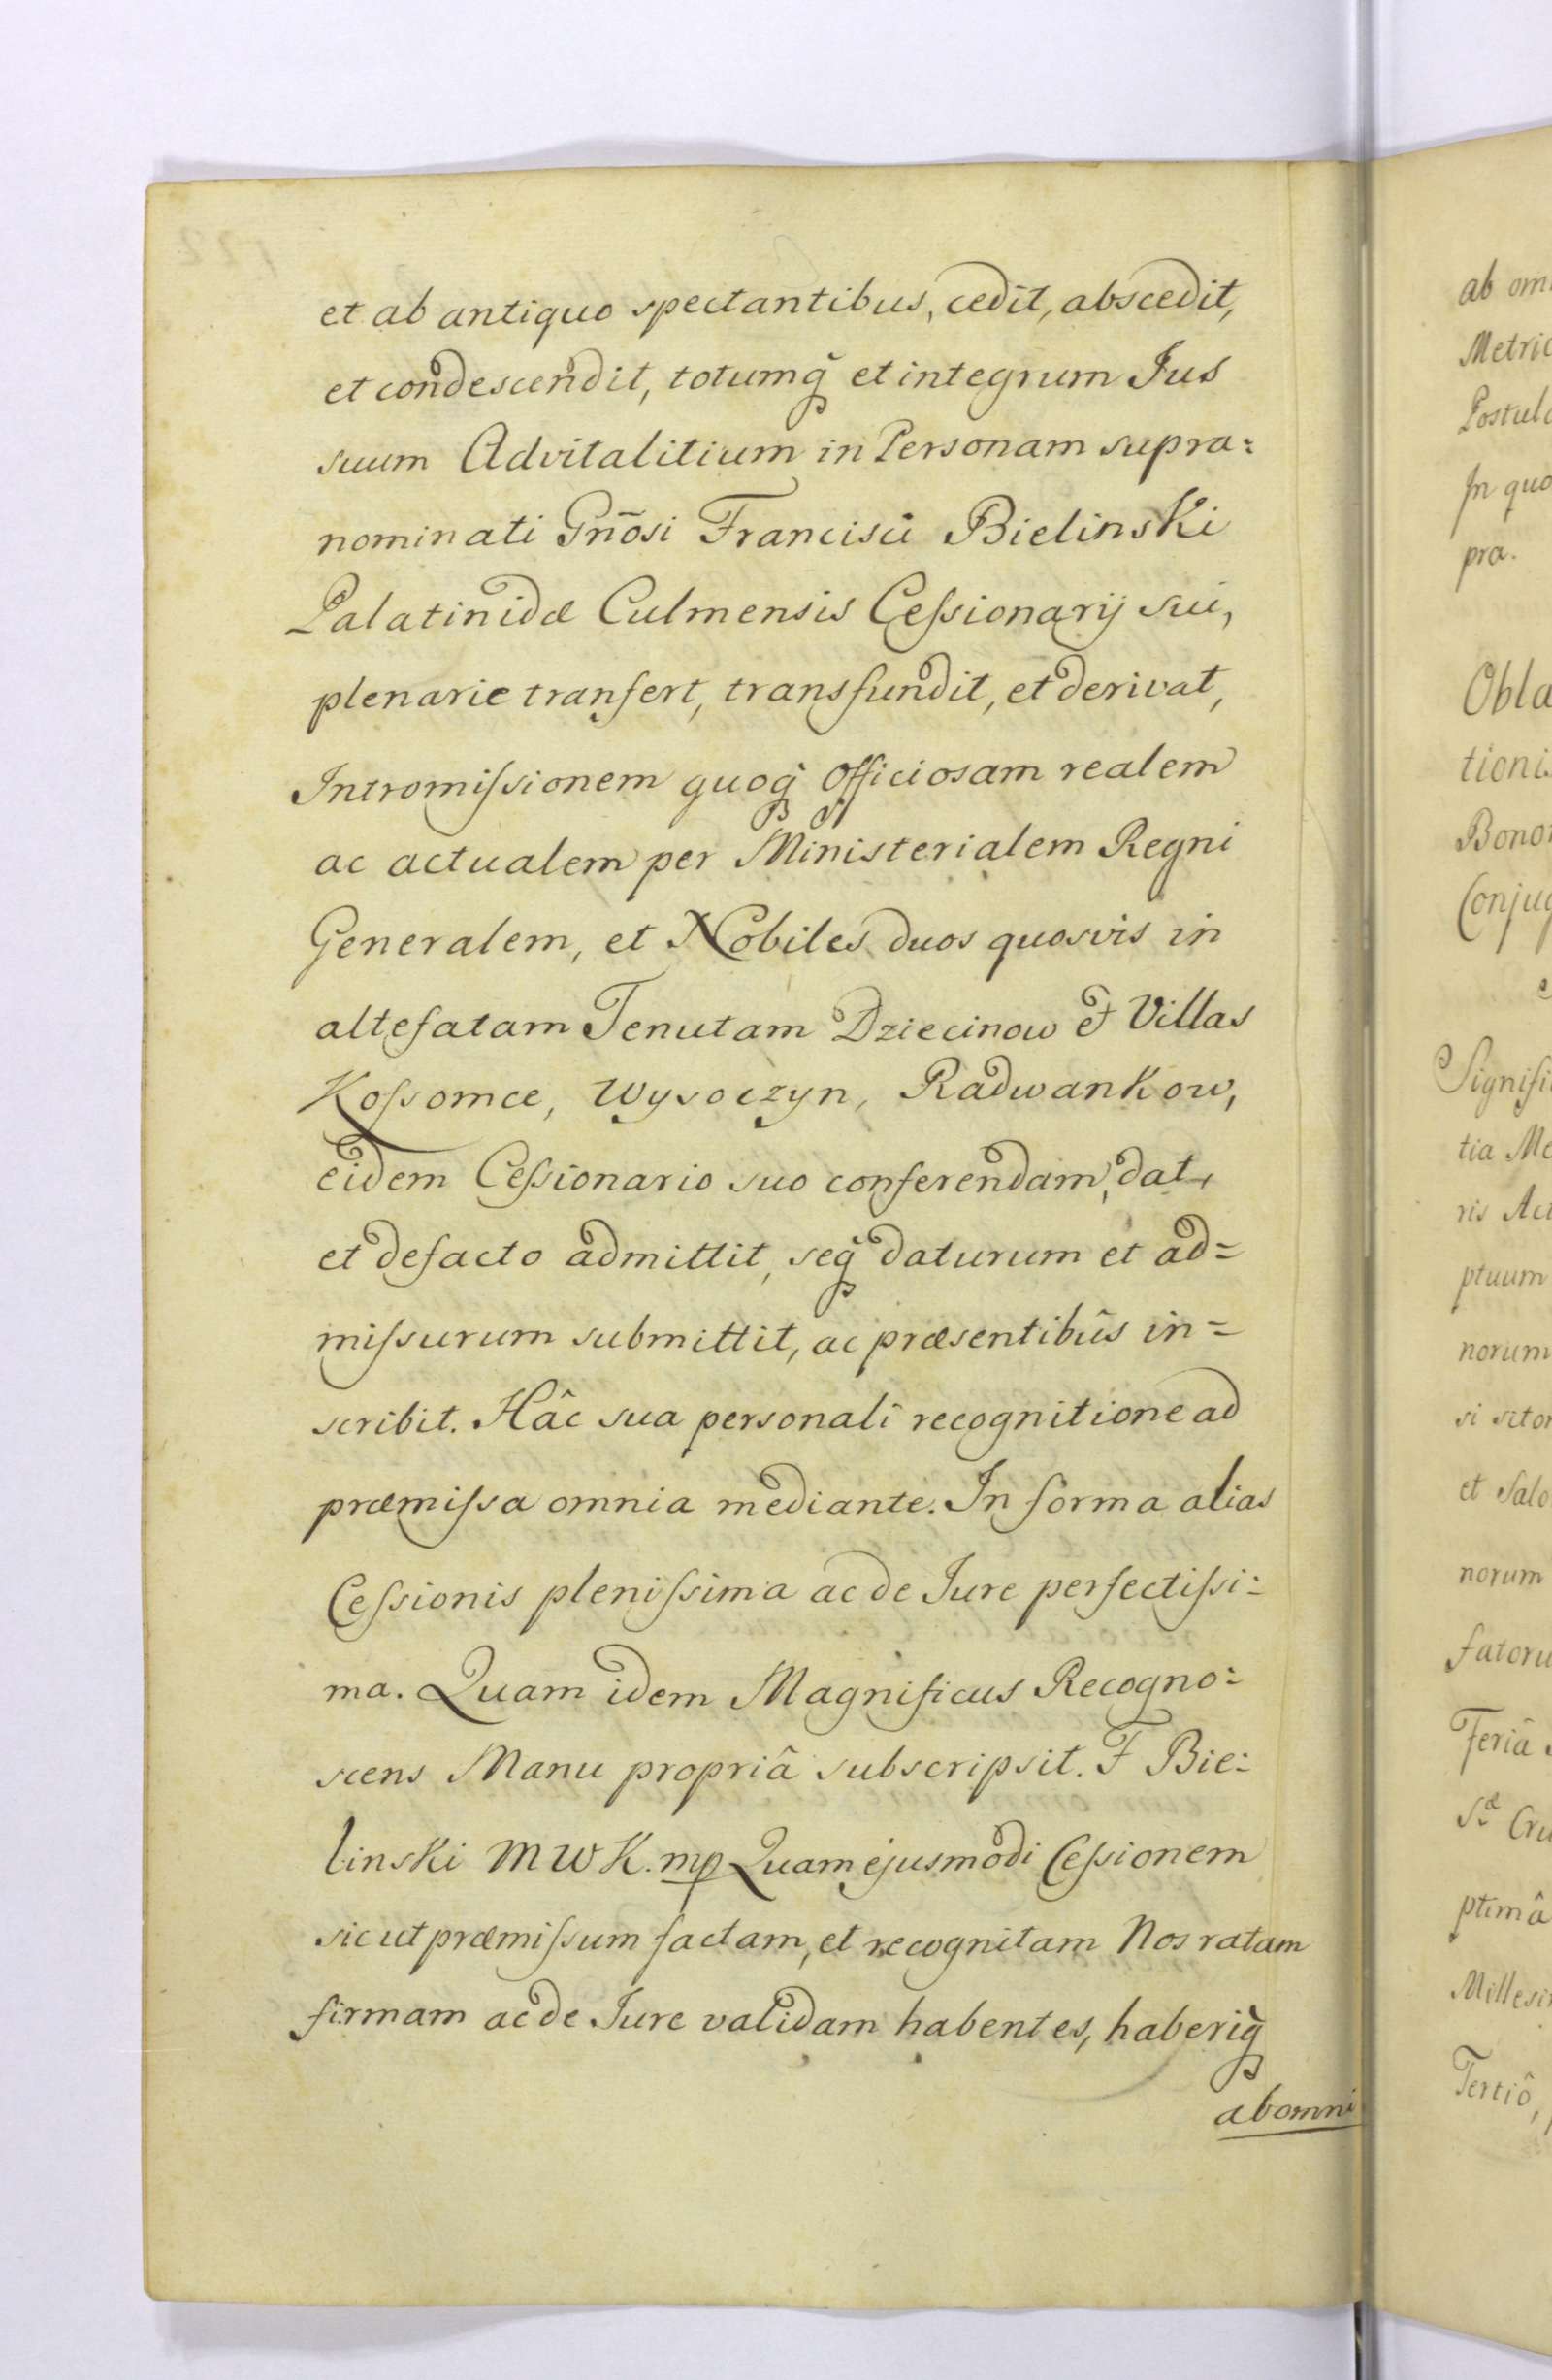 et ab antiquo spectantibus, cedit, abscedit,
et condescendit, totumq̃ et integrum Jus
suum Advitalitium in Personam supra:
nominati Gn̄osi Francisci Bielinski
Palatinidæ Culmensis Ceſsionarij sui,
plenarie tranfert, transfundit, et derivat,
Intromiſsionem quoq̃ Officiosam realem
ac actualem per Ministerialem Regni
Generalem, et Nobiles duos quosvis in
altefatam Tenutam Dziecinow et Villas
Koſsomce, Wysoczyn, Radwankow,
eidem Ceſsionario suo conferendam, dat,
et defacto admittit, seq̃ daturum et ad=
miſsurum submittit, ac præsentibûs in=
scribit. Hâc sua personali recognitione ad
præmiſsa omnia mediante. In forma alias
Ceſsionis pleniſsima ac de Jure perfectiſsi:
ma. Quam idem Magnificus Recogno:
scens Manu propriâ subscripsit. F Bie:
linski MWK. mp Quam ejusmodi Ceſsionem
sicut præmiſsum factam, et recognitam Nos ratam
firmam ac de Jure validam habentes, haberiq̃
ab omni
ab om
Metric
Postul
In quo
pra.
Obla
tionis
Bono
Conjug
Signifi
tia Me
ris Act
ptuum
norum
si sitor
et Salo
norum
fatoru
Feriâ
Sæ Cru
ptimâ
Millesi
Tertiô,